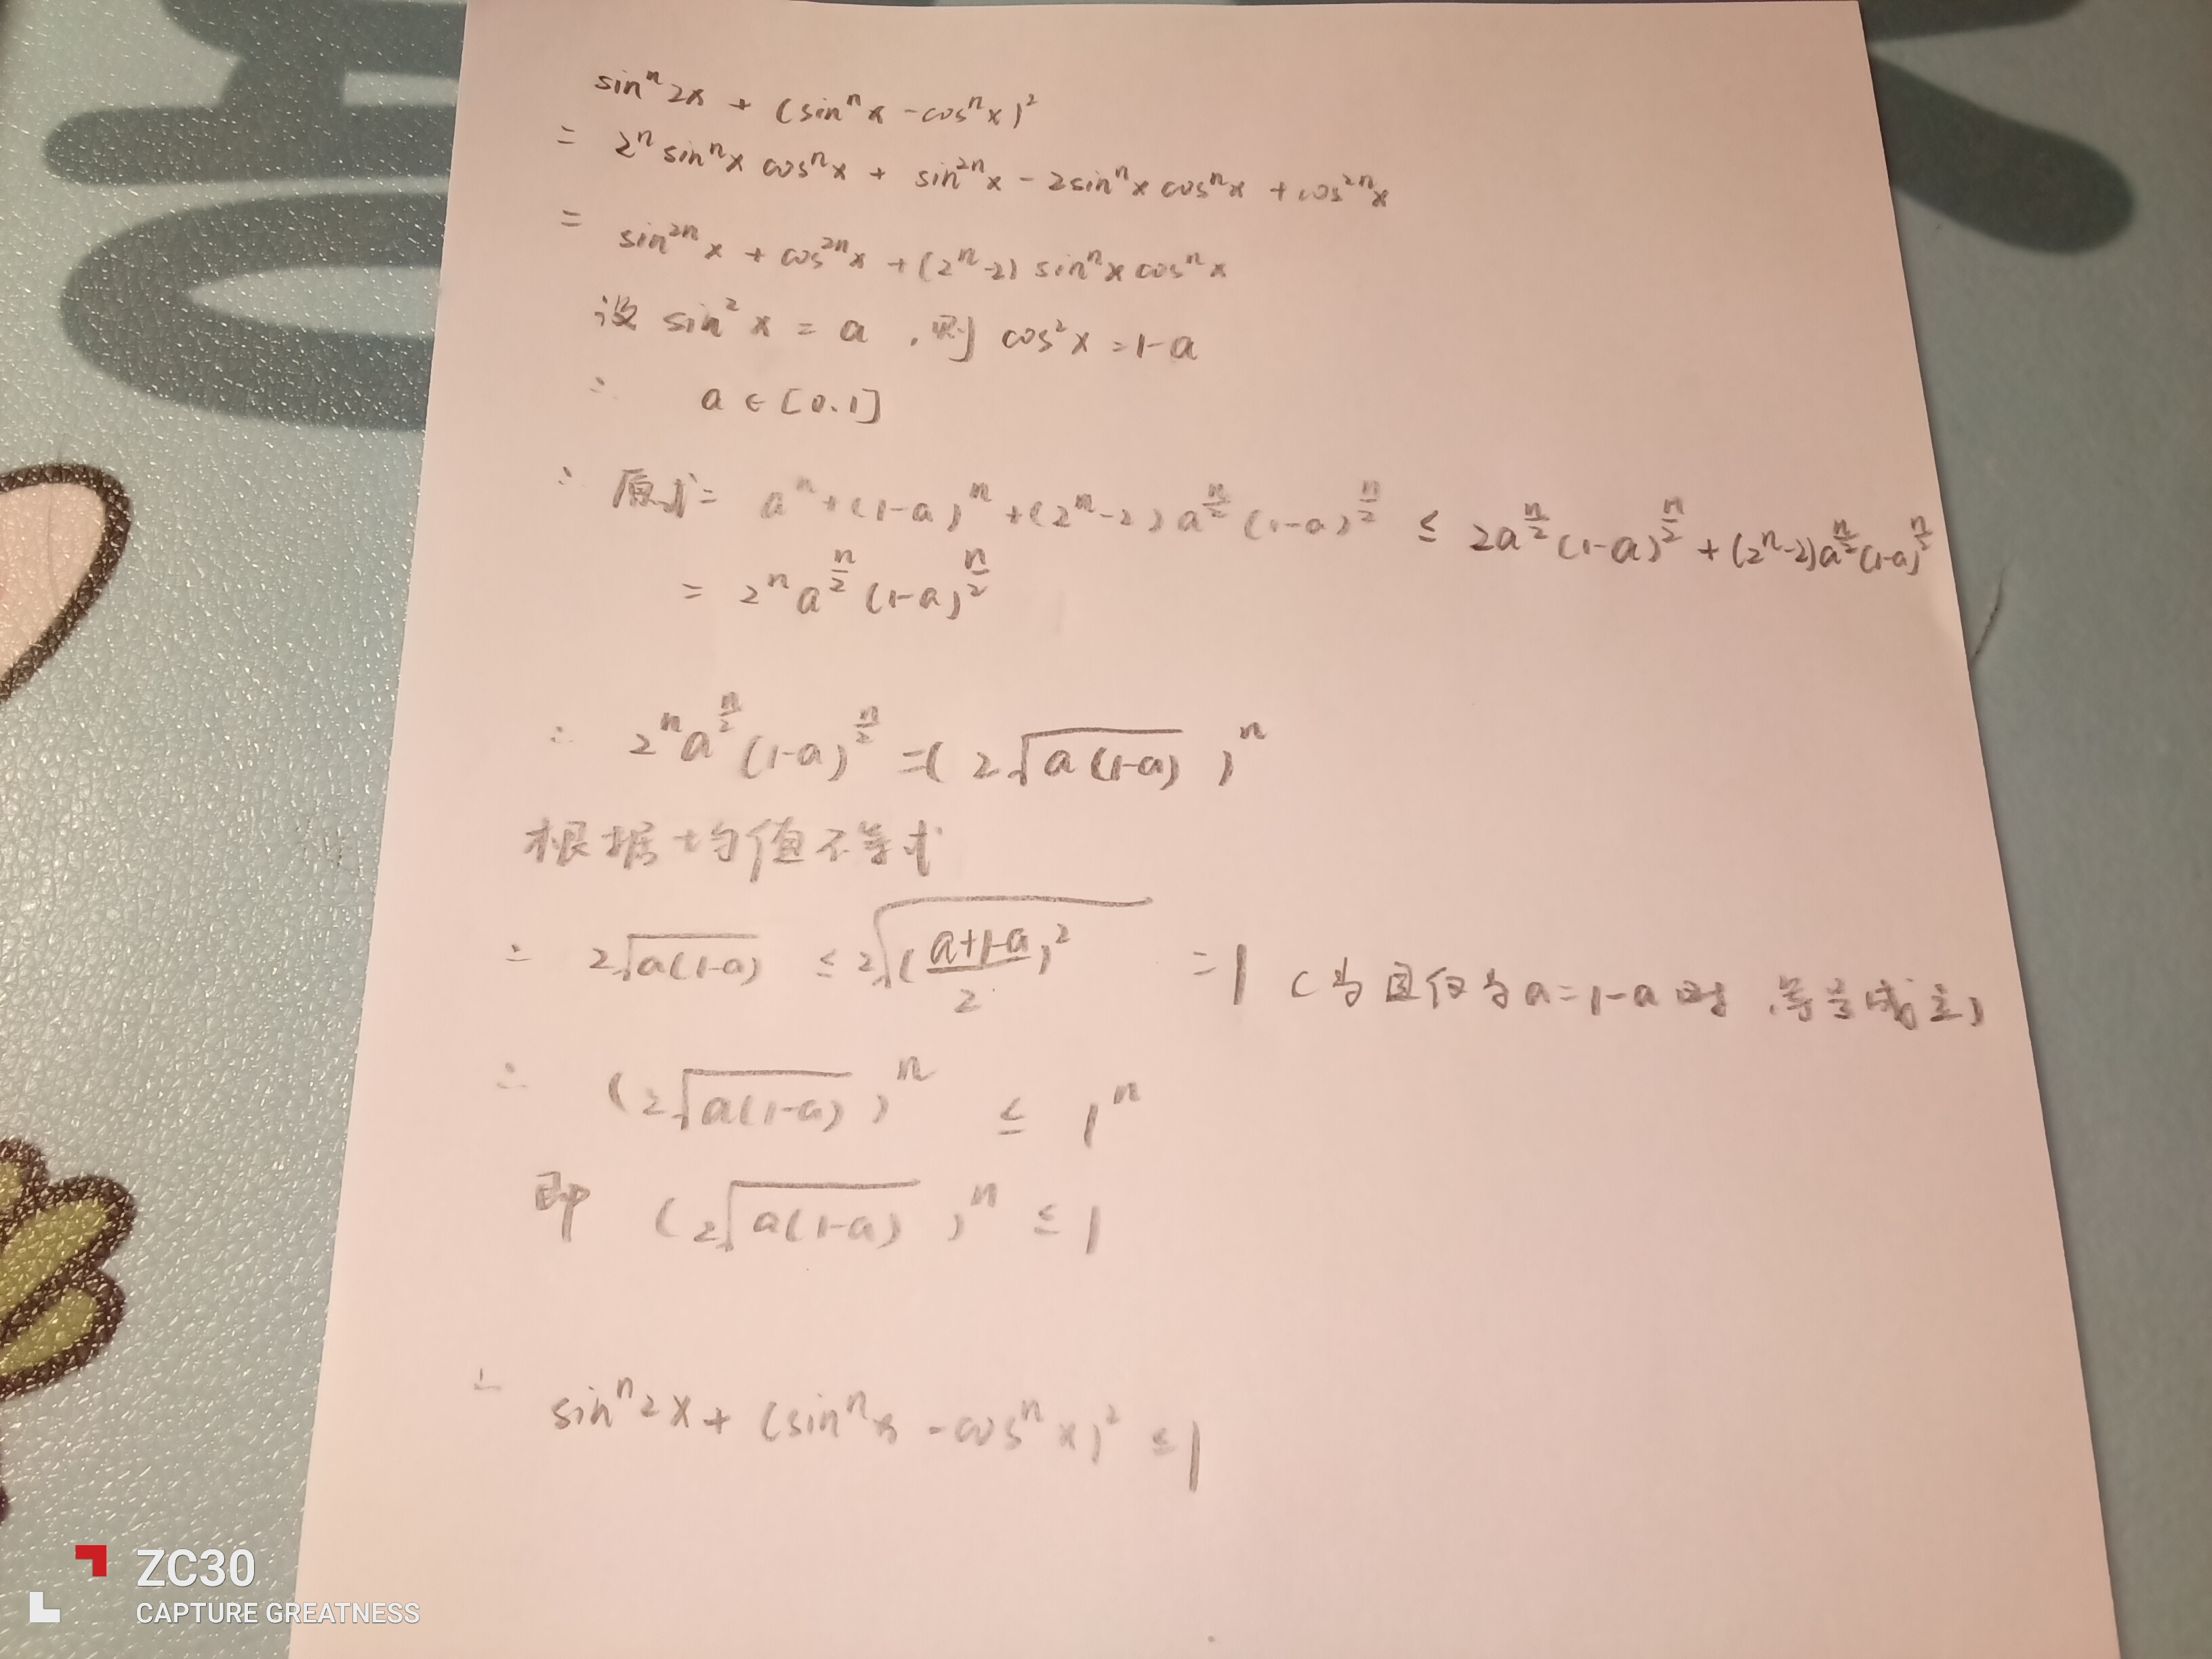 sinⁿ2x + (sinⁿx - cosⁿx)²
= 2ⁿ sinⁿx cosⁿx + sin²ⁿx - 2sinⁿx cosⁿx + cos²ⁿx
= sin²ⁿx + cos²ⁿx + (2ⁿ-2) sinⁿx cosⁿx
设 sin²x = a , 则 cos²x = 1-a
∴ a ∈ [0.1]
∴ 原式 = aⁿ + (1-a)ⁿ + (2ⁿ-2) a^{n/2} (1-a)^{n/2} ≤ 2a^{n/2} (1-a)^{n/2} + (2ⁿ-2)a^{n/2}(1-a)^{n/2}
= 2ⁿ a^{n/2} (1-a)^{n/2}
∴ 2ⁿ a^{n/2} (1-a)^{n/2} = (2√(a(1-a)))ⁿ
根据均值不等式
∴ 2√(a(1-a)) ≤ 2√((a+1-a)/2)² = 1 (当且仅当a=1-a时,等号成立)
∴ (2√(a(1-a)))ⁿ ≤ 1ⁿ
即 (2√(a(1-a)))ⁿ ≤ 1
∴ sinⁿ2x + (sinⁿx - cosⁿx)² ≤ 1
ZC30
CAPTURE GREATNESS